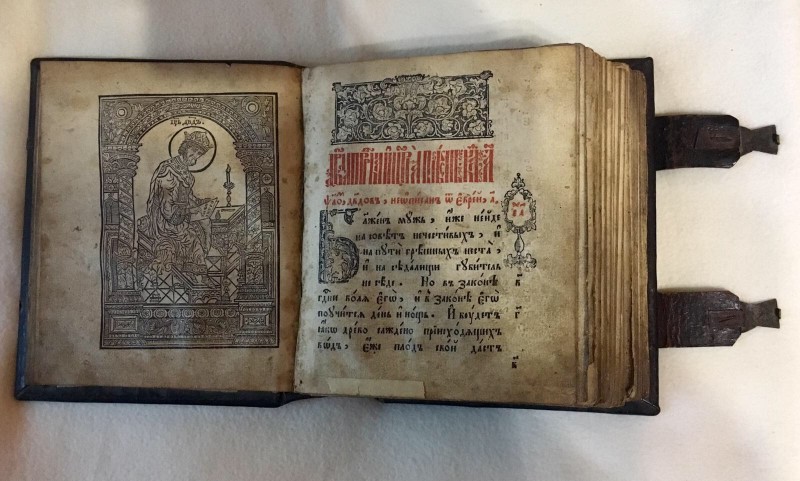 цр҃ь дв҃дъ.
дв҃довъ, ѿ є҆вре́й, а҃
Бл҃же́нъ мꙋ́жъ, и҆́же не и҆́де
на совѣ́тъ нечести́выхъ, и҆
на пꙋти̑ грѣ́шныхъ не ста̀,
и҆ на сѣда́лищи гꙋби́тель
ни сѣ́де. Но въ зако́нѣ
гд҇ни во́лѧ є҆гѡ̀, и҆ в̾ зако́нѣ є҆гѡ̀
поꙋчи́тсѧ де́нь и҆ но́щь. И҆ бꙋ́детъ
ꙗ҆́кѡ дре́во сажде́но при и҆схо́дѧщихъ
во́дъ, є҆́же пло́дъ сво́й да́стъ